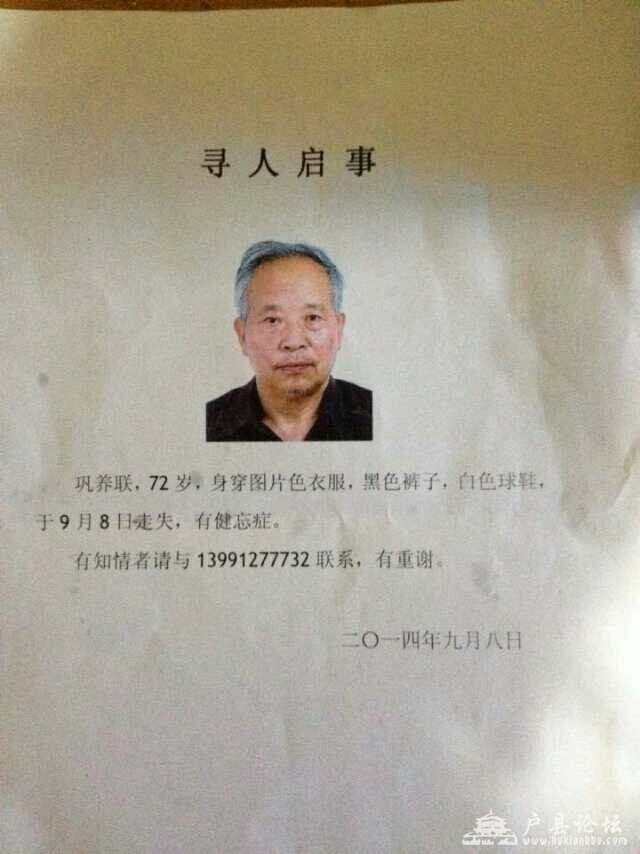 寻人启事
巩养联，72岁，身穿图片色衣服，黑色裤子，白色球鞋，
于9月8日走失，有健忘症。
有知情者请与13991277732联系，有重谢。
二〇一四年九月八日
户县论坛